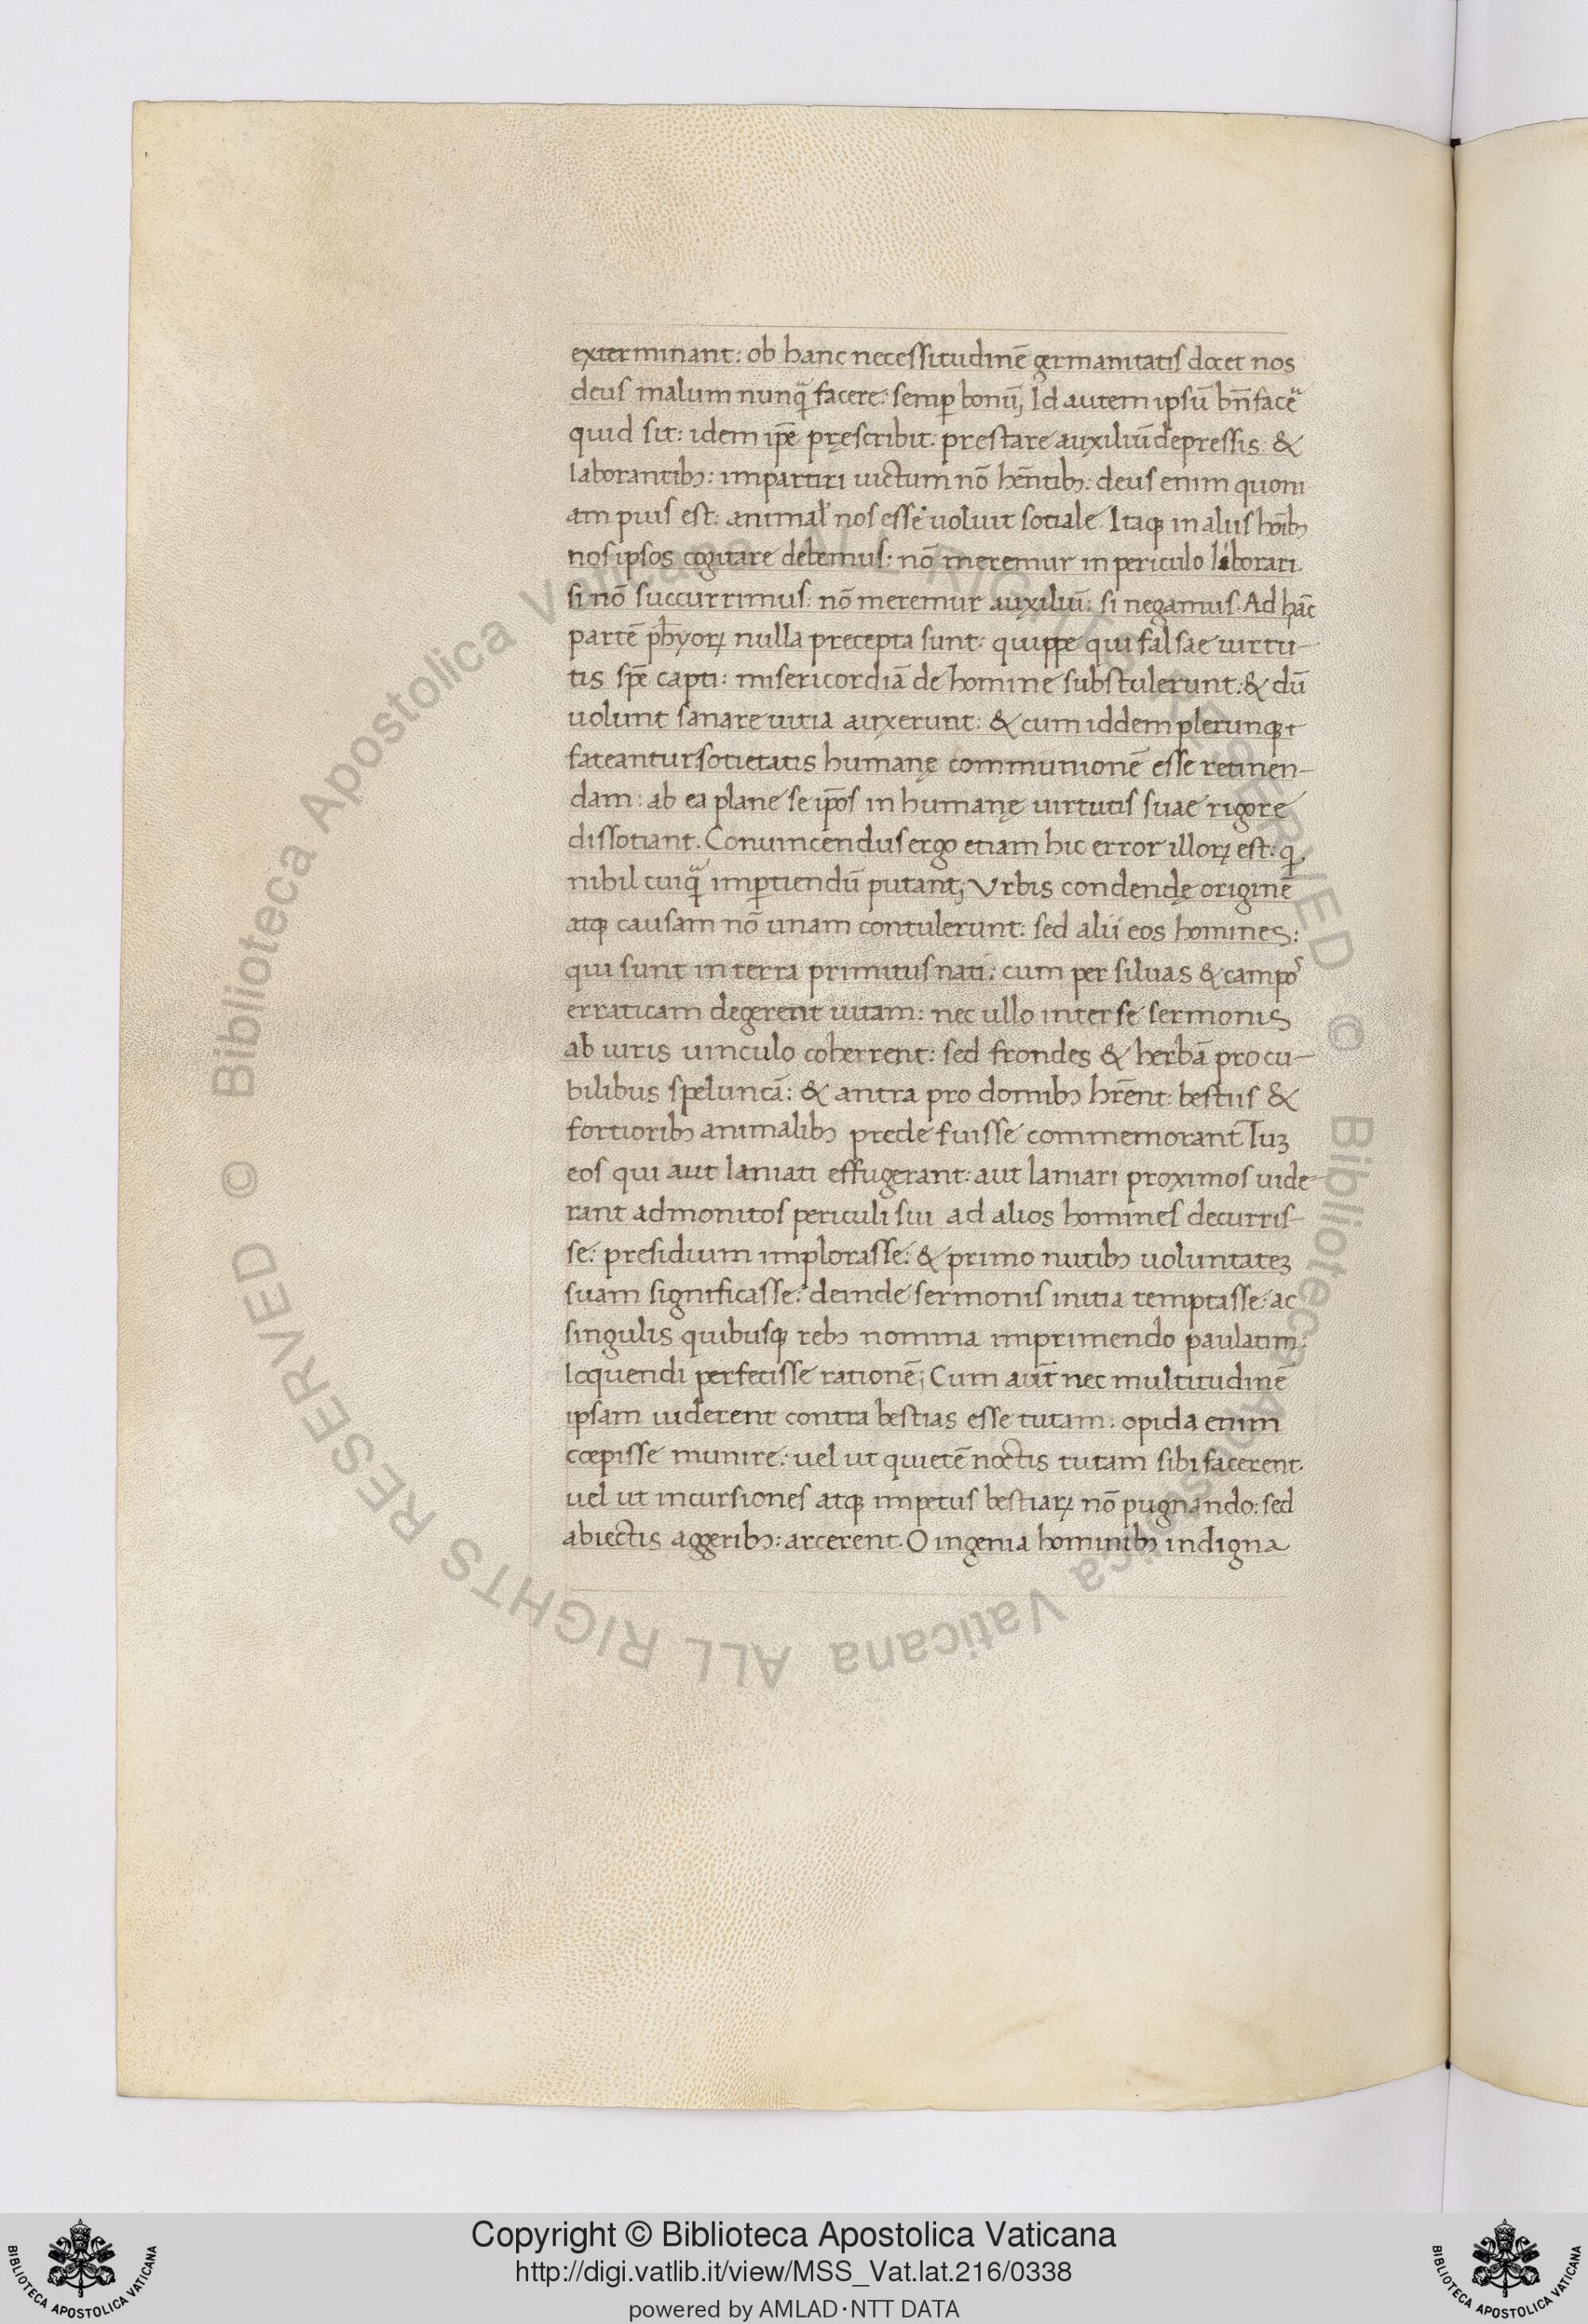 exterminant: ob hanc necessitudinē germanitatis docet nos
deus malum nunqᷓ facere: semꝑ bonū; Id autem ipsū bn̄facē
quid sit: idem ip̄e pręscribit: prestare auxiliū depressis &
laborantibꝫ: impartiri uictum nō hn̄tibꝫ: deus enim quoni
am pius est: animal nos esse uoluit sotiale. Itaqꝫ in aliis hoībꝫ
nos ipsos cogitare debemus: nō meremur in periculo liborari.
si nō succurrimus: nō meremur auxiliū: si negamus. Ad hāc
partē ph̄yoꝝ nulla precepta sunt: quippe qui falsae uirtu-
tis spē capti: misericordiā de homine substulerunt: & dū
uolunt sanare uitia auxerunt: & cum iddem plerunqꝫ
fateantur sotietatis humanę communionē esse retinen-
dam: ab ea plane se ip̄os in humanę uirtutis suae rigore
dissotiant. Conuincendus ergo etiam hic error illoꝝ est: q̇
nihil cuiqᷓ imꝑtiendū putant; Vrbis condendę originē
atqꝫ causam nō unam contulerunt: sed alii eos homines:
qui sunt in terra primitus nati: cum per siluas & campos
erraticam degerent uitam: nec ullo inter se sermonis
ab iuris uinculo coherrent: sed frondes & herbā pro cu-
bilibus speluncā: & antra pro domibꝫ hr̄ent: bestiis &
fortioribꝫ animalibꝫ prede fuisse commemorant Tuꝫ
eos qui aut laniati effugerant: aut laniari proximos uide-
rant admonitos periculi sui ad alios homines decurris-
se: presidium implorasse: & primo nutibꝫ uoluntateꝫ
suam significasse: deinde sermonis initia temptasse: ac
singulis quibusqꝫ rebꝫ nomina imprimendo paulatim:
loquendi perfecisse rationē; Cum aut̄ nec multitudinē
ipsam uiderent contra bestias esse tutam: opida enim
cœpisse munire: uel ut quietē noctis tutam sibi facerent.
uel ut incursiones atqꝫ impetus bestiaꝝ nō pugnando: sed
abiectis aggeribꝫ: arcerent. O ingenia hominibꝫ indigna
Copyright © Biblioteca Apostolica Vaticana
http://digi.vatlib.it/view/MSS_Vat.lat.216/0338
powered by AMLAD·NTT DATA
BIBLIOTECA APOSTOLICA VATICANA
BIBLIOTECA APOSTOLICA VATICANA
© Biblioteca Apostolica Vaticana ALL RIGHTS RESERVED © Biblioteca Apostolica Vaticana ALL RIGHTS RESERVED